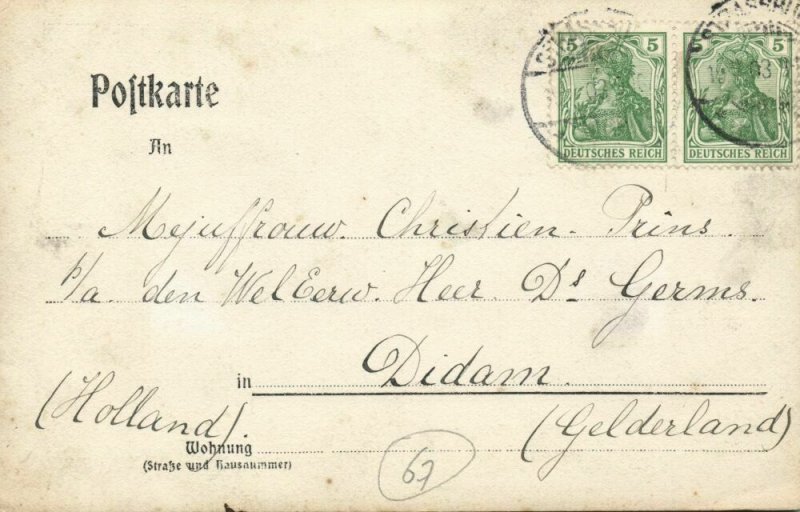 5 5 5 5
DEUTSCHES REICH DEUTSCHES REICH
Postkarte
An
Mejuffrouw. Christien. Prins.
p/a. den WelEerw. Heer. Ds Germs.
in Didam.
(Holland). (Gelderland)
Wohnung
(Straße und Hausnummer)
67